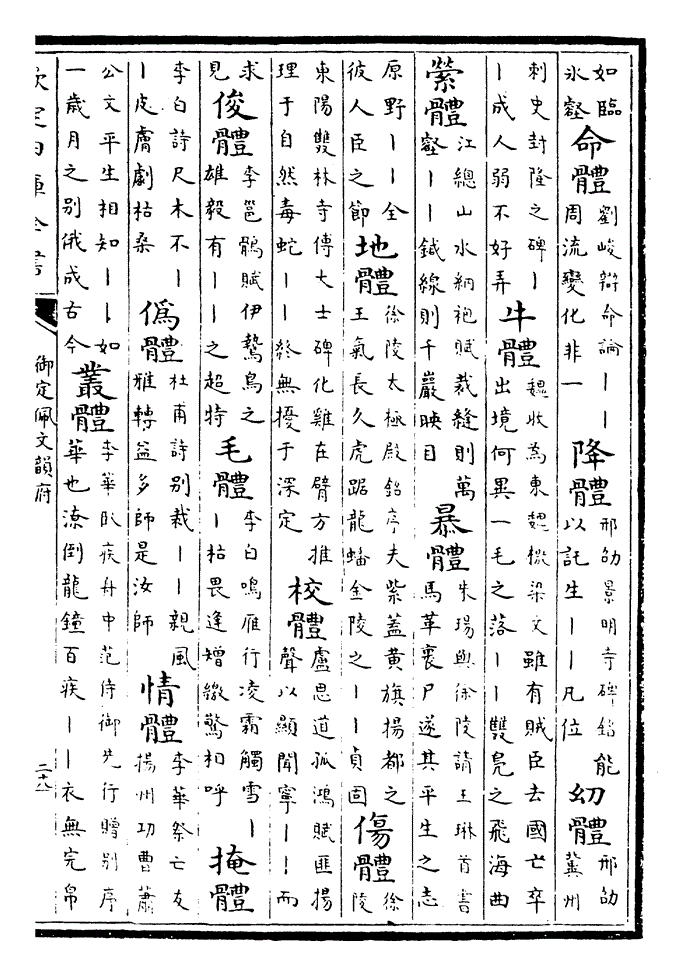 如臨氷壑命體劉峻辯命論丨丨周流變化非一降體邢劭景明寺碑銘能以託生丨丨凡位幼體邢劭冀州
刺史封隆之碑丨丨成人弱不好弄牛體魏收為東魏檄梁文雖有賊臣去國亡卒出境何異一毛之落丨丨雙鳧之飛海曲
縈體江總山水納袍賦裁縫則萬壑丨丨鍼線則千巖映目暴體朱瑒與徐陵請王琳首書馬革裹尸遂其平生之志
原野丨丨全彼人臣之節地體徐陵太極殿銘序夫紫蓋黃旗揚都之王氣長久虎踞龍蟠金陵之丨丨貞固傷體徐陵
東陽雙林寺傅大士碑化雞在臂方推理于自然毒蛇丨丨終無擾于深定校體盧思道孤鴻賦匪揚聲以顯聞寧丨丨而
求見俊體李邕鶻賦伊鷙鳥之雄毅有丨丨之超特毛體李白鳴雁行凌霜觸雪丨丨枯畏逢矰繳驚相呼掩體
李白詩尺木不丨丨皮膚劇枯桑偽體杜甫詩別裁丨丨親風雅轉益多師是汝師情體李華祭亡友揚州功曹蕭
公文平生相知丨丨如一歲月之別俄成古今叢體李華臥疾舟中范侍御先行贈別序華也潦倒龍鐘百疾丨丨衣無完帛
欽定四庫全書
御定佩文韻府
二十八